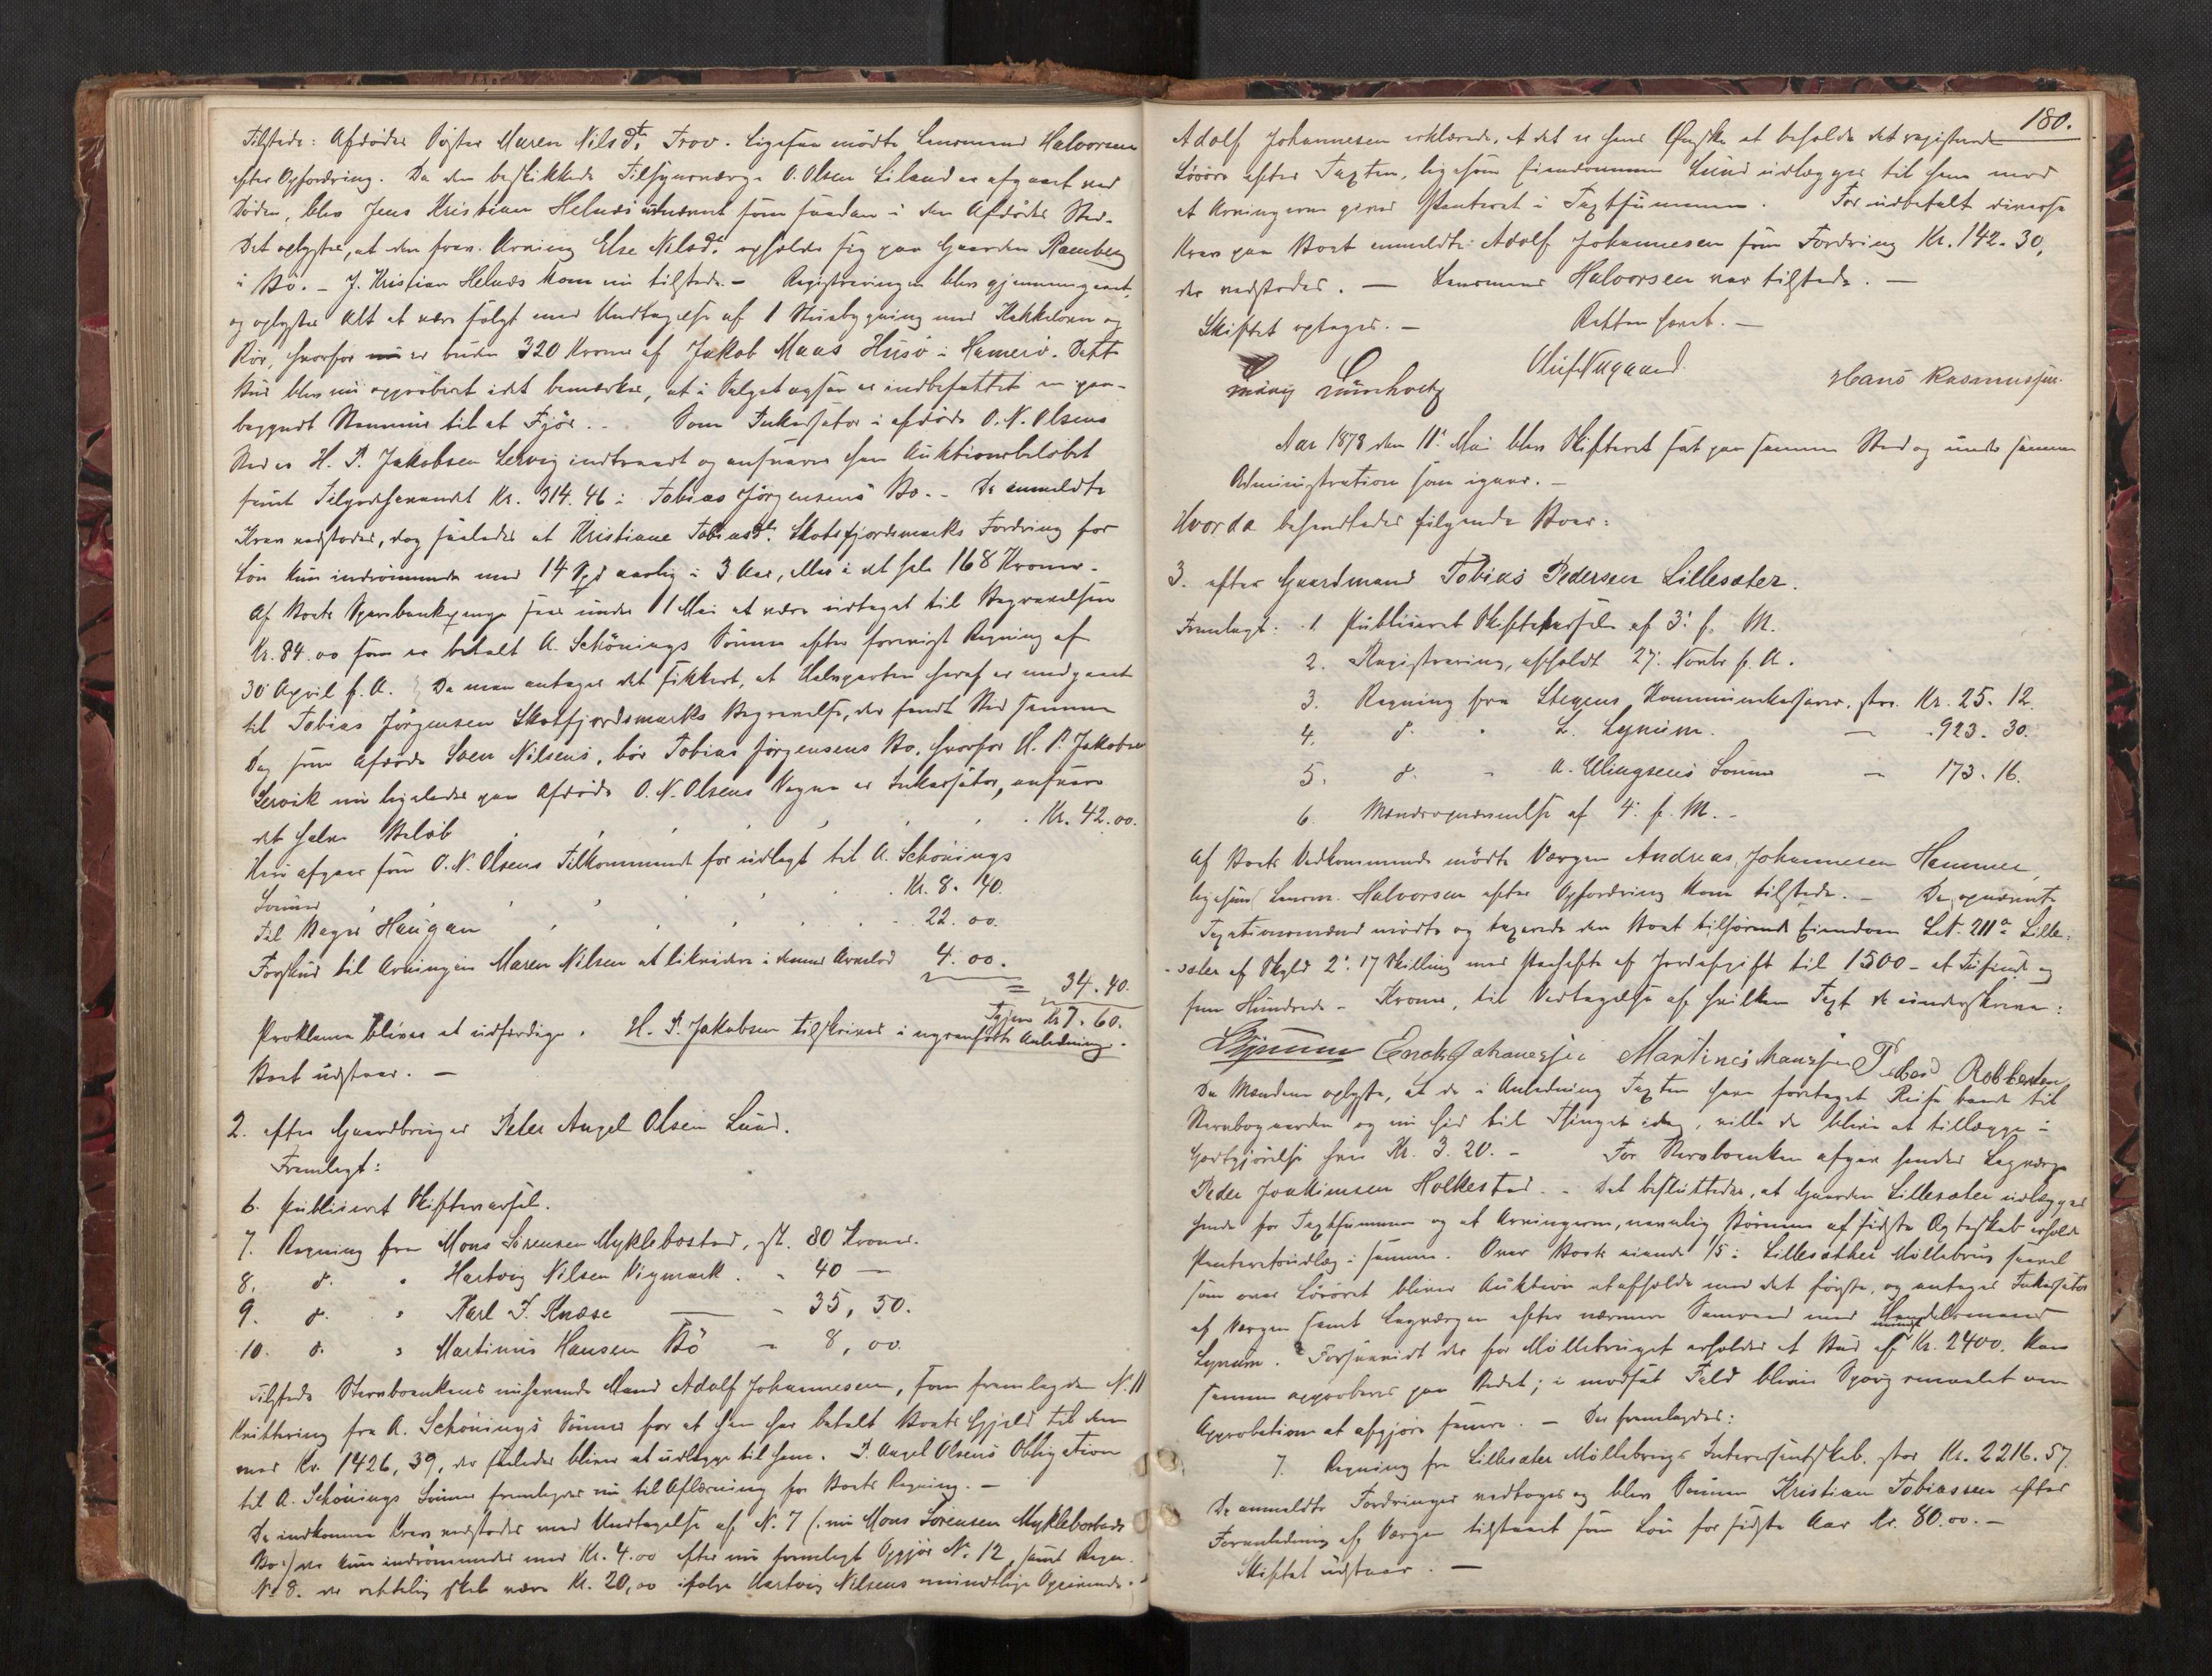 Tilstede: Afdødes Søster Maren Nilsdt. Trov. Ligesaa mødte Lensmand Halvorsen
efter Opfordring. Da den beskikkede Tilsynsværge O. Olsen Liland er afgaaet ved
Døden, blev Jens Kristian Helnæs udnævnt som saadan i den Afdødes Sted.
Det oplystes, at den frav. Arving Else Nilsdt. opholder sig paa Gaarden Ramberg
i Bø. - J. Kristian Helnæs kom nu tilstede. - Registreringen blev gjennemgaaet,
og oplystes Alt at være solgt med Undtagelse af 1 Stuebygning med Kakkelovn og
Rør, hvorfor er buden 320 Kroner af Jakob Maas Husø i Hamerø. Dette
Bud blev nu approberet idet bemærkes, at i Salget ogsaa er indbefattet en paa-
begyndt til et Fjøs. - Som Inkassator i afdøde O. N. Olsens
Sted er H. P. Jakobsen Lervig indtraadt og ansvarer han Auktionsbeløbet
samt Tilgodehavendet Kr. 314. 46 i Tobias Jørgensens Bo. - De anmeldte
Krav vedtoges, dog saaledes at Kristiane Tobiasdt. Skotsfjordsmarks Fordring for
Løn kun indrømmedes med 14 Spd aarlig i 3 Aar, eller i det hele 168 Kroner.
Af Boets Sparebankpenge sees under 1 Mai at være udtaget til Begravelsen
Kr. 84. 00 som er betalt A. Schönings Sønner efter forevist Regning af
30 April f. A. Da man antager det sikkert, at Halvparten heraf er medgaaet
til Tobias Jörgensen Skotfjordsmarks Begravelse, der fandt Sted samme
Dag som afdøde Sven Nilsens, bør Tobias Jörgensens Bo, hvorfor H. P. Jakobsen
Lervik nu ligeledes paa afdøde O. N. Olsens Vegne er Inkassator, ansvare
det halve Beløb Kr. 42. 00.
Heri afgaar som O. N. Olsens Tilkommende for udlagt til A. Schönings
Sønner Kr. 8. 40.
Til Haugan 22. 00.
Forskud til Arvingen Maren Nilsen at likvidere i dennes Arvelod 4. 00.
= 34. 40.
Igjen Kr 7. 60.
Proklama bliver at udfærdige. H. P. Jakobsen tilskrives i Anledning.
Boet udstaar. -
2. efter Gaardbruger Peter Angel Olsen Lund.
Fremlagt:
6. Publiceret Skiftevarsel.
7. Regning fra Mons Sörensen Myklebostad, st. 80 Kroner.
8. d. " Hartvig Nilsen Vigmark. - 40 —
9. d. " Karl J. Knæse — - 35, 50.
10. d. " Martinus Hansen Bö - 8, 00
Tilstede Stervboenkens nuhavende Mand Adolf Johannesen, som fremlagde N. 11
Kvittering fra A. Schönings Sønner for at han har betalt Boets Gjæld til dem
med Kr. 1426, 39, der saaledes bliver at udlægge til ham. P. Angel Olsens Obligation
til A. Schönings Sønner fremlagdes nu til Aflæsning for Boets Regning. -
De indkomne Krav vedtoges med Undtagelse af N. 7 (: nu Mons Sörensen Myklebostads
Bo:) der kun indrømmedes med Kr. 4. 00 efter nu fremlagt Opgjør No. 12, samt Regn.
No 8. der rettelig skal være Kr. 20, 00 ifølge Hartvig Nilsens mundtlige Opgivende. -
180.
Adolf Johannesen erklærede, at det er hans Ønske at beholde det registrerede
Løsøre efter Taxten, ligesom Eiendommen Lund udlægges til ham mod
at Arvingerne gives Panteret i Taxtsummen. For udbetalt diverse
Krav paa Boet anmeldte Adolf Johannesen som Fordring Kr. 142. 30,
der vedtoges. — Lensmand Halvorsen var tilstede. —
Skiftet optages. — Retten hævet. —
Hans Rasmussen.
Aar 1878 den 11. Mai blev Skifteret sat paa samme Sted og under samme
Administration som igaar. —
Hvorda behandledes følgende Boer:
3. efter Gaardmand Tobias Pedersen Lillesæter.
Fremlagt: 1 Publiceret Skiftevarsel af 3. f. M.
2. Registrering, afholdt 27. Novbr f. A.
3. Regning fra Stegens Kommunekasserer, stor Kr. 25. 12.
4. d. " L. Lynum. — - 923. 30.
5. d. " A. Ellingsens Sønner — 173. 16.
6. Mændsopnævnelse af 4. f. M. -
Af Boets Vedkommende mødte Værgen Andreas Johannesen Hammer,
ligesom Lensm. Halvorsen efter Opfordring kom tilstede. - De opnævnte
Taxationsmænd mødte og taxerede den Boet tilhørende Eiendom Lt. 211a Lille-
sæter af Skyld 2. 17 Skilling med Paahefte af Jordafgift til 1500 - et Tusinde og
fem Hundrede - Kroner, til Vedtagelse af hvilken Taxt de underskreve:
Lynum Enok Johanessen Martines Hanssen Peder Robbertsen
Da Mændene oplyste, at de i Anledning Taxten have foretaget Reise baade til
Stervbogaarden og nu hid til Thinget idag, ville de blive at tillægge i
Godtgjørelse hver Kr. 3. 20. - For Stervboenken afgav hendes Lagværge
Peder Joakimsen Holkestad. - Det besluttedes, at Gaarden Lillesæter udlægges
hende for Taxtsummen og at Arvingerne, navnlig Børnene af sidste Ægteskab erholde
Panteretsudlæg i samme. Over Boets eiende 1/5 i Lillesæther Møllebrug saavel
som over Løsøret bliver Auktion at afholde med det første, og antages Inkassator
af Værgen samt Lagværgen efter nærmere Samraad med Handelsmand
Lynum. Forsaavidt der for Møllebruget erholdes et Bud af mindst Kr. 2400. kan
samme approberes paa Stedet; i modsat Fald bliver Spørgsmaalet om
Approbation at afgjøre senere. — Der fremlagdes:
7. Regning fra Lillesæter Møllebrugs Interessentskab, stor Kr. 2216. 57.
De anmeldte Fordringer vedtoges og blev Sønnen Kristian Tobiassen efter
Foranledning af Værgen tilstaaet som Løn for sidste Aar Kr. 80. 00. —
Skiftet udstaar. —